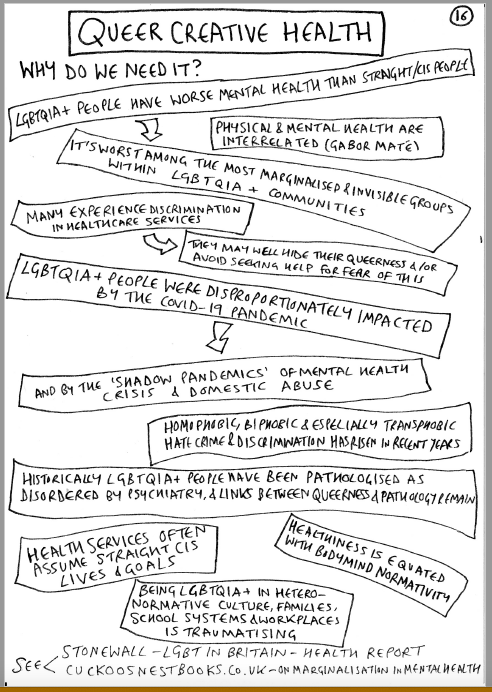 16
QUEER CREATIVE HEALTH
WHY DO WE NEED IT?
LGBTQIA+ PEOPLE HAVE WORSE MENTAL HEALTH THAN STRAIGHT/CIS PEOPLE
PHYSICAL & MENTAL HEALTH ARE
INTERRELATED (GABOR MATÉ)
IT'S WORST AMONG THE MOST MARGINALISED & INVISIBLE GROUPS
WITHIN LGBTQIA+ COMMUNITIES
MANY EXPERIENCE DISCRIMINATION
IN HEALTHCARE SERVICES
THEY MAY WELL HIDE THEIR QUEERNESS &/OR
AVOID SEEKING HELP FOR FEAR OF THIS
LGBTQIA+ PEOPLE WERE DISPROPORTIONATELY IMPACTED
BY THE COVID-19 PANDEMIC
AND BY THE 'SHADOW PANDEMICS' OF MENTAL HEALTH
CRISIS & DOMESTIC ABUSE
HOMOPHOBIC, BIPHOBIC & ESPECIALLY TRANSPHOBIC
HATE CRIME & DISCRIMINATION HAS RISEN IN RECENT YEARS
HISTORICALLY LGBTQIA+ PEOPLE HAVE BEEN PATHOLOGISED AS
DISORDERED BY PSYCHIATRY, & LINKS BETWEEN QUEERNESS & PATHOLOGY REMAIN
HEALTH SERVICES OFTEN
ASSUME STRAIGHT CIS
LIVES & GOALS
HEALTHINESS IS EQUATED
WITH BODYMIND NORMATIVITY
BEING LGBTQIA+ IN HETERO-
NORMATIVE CULTURE, FAMILIES,
SCHOOL SYSTEMS & WORKPLACES
IS TRAUMATISING
SEE < STONEWALL - LGBT IN BRITAIN - HEALTH REPORT
CUCKOOSNESTBOOKS.CO.UK - ON MARGINALISATION IN MENTAL HEALTH